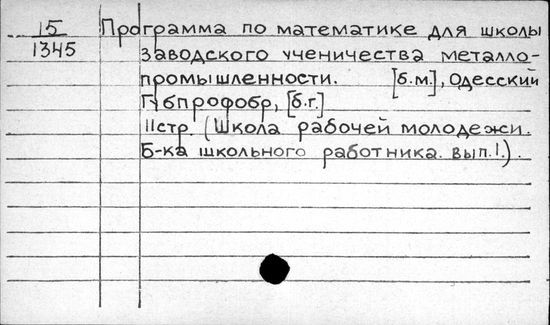 15 Программа по математике для школы
1345 заводского ученичества металло-
промышленности. [б.м.], Одесский
Губпрофобр, [б.г.]
11стр. (Школа рабочей молодежи.
Б-ка школьного работника. вып.1.).